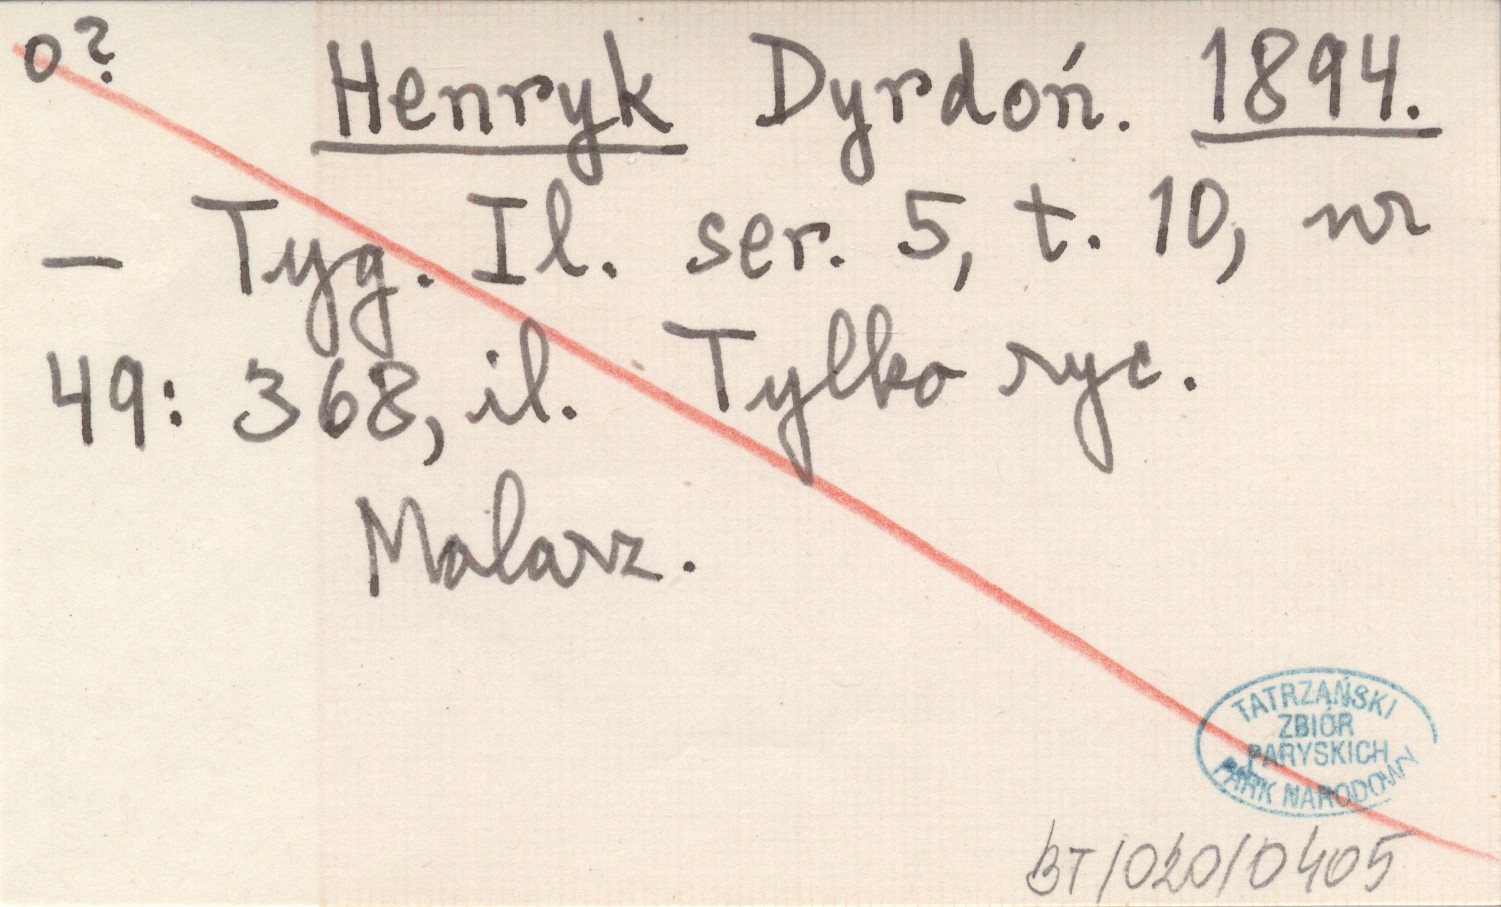 o?
Henryk Dyrdoń. 1894.
— Tyg. Il. ser. 5, t. 10, nr
49: 368, il. Tylko ryc.
Malarz.
TATRZAŃSKI
ZBIÓR
PARYSKICH
PARK NARODOWY
BT/020/0405